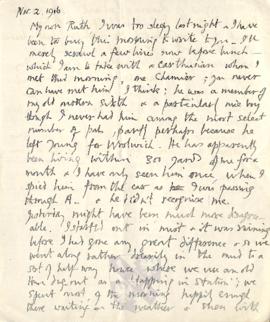 Nov. 2. 1916
My own Ruth I was too sleepy last night & I have
been too busy this morning to write to you. I'll
merely scribble a few lines now before lunch -
which I am to take with a Carthusian whom I
met this morning, one Chamier; you never
can have met him I think: he was a member of
my old modern sixth & a particularly nice boy
though I never had him among the most select
number of pals, partly perhaps because he
left young for Woolwich. He has apparently
been living within 300 yards of me for a
month & I have only seen him once, when I
spied him from the car as I was passing
through A.. & he didn't recognise me.
Yesterday might have been much more disagree-
able. I started out in mist & it was raining
before I had gone any great difference & so we
went along rather drearily in the mud to a
sort of half way house where we use an old
Hun dug out as a "tapping in station"; we
spent most of the morning happily enough
there waiting on the weather & then with